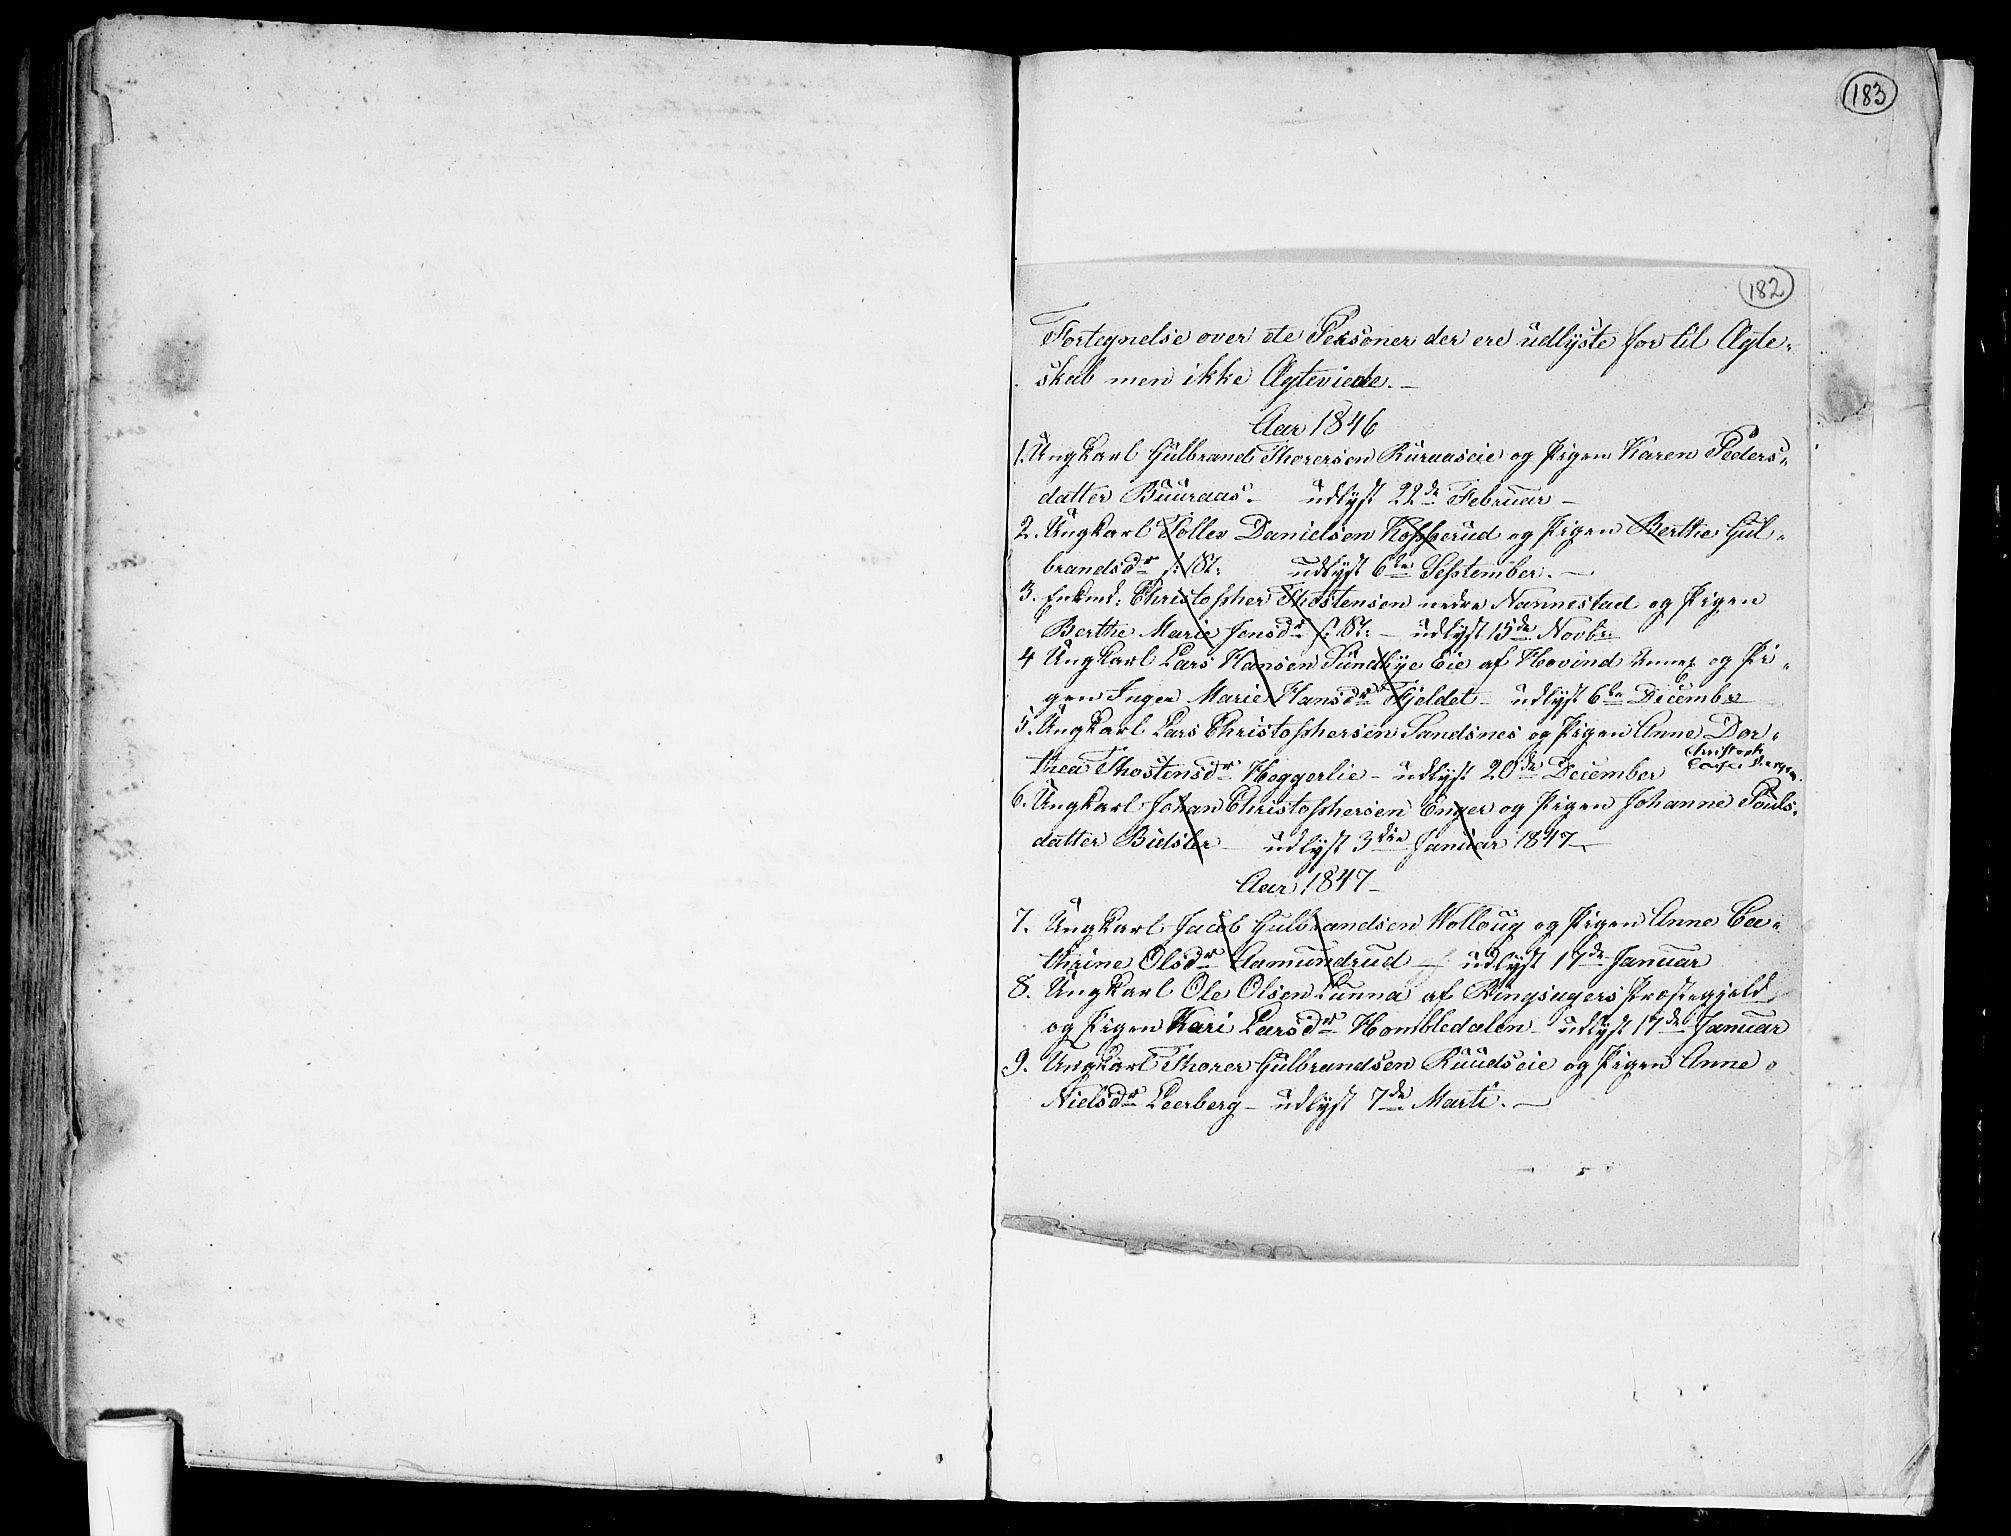 183
182
Fortegnelse over de Personer der ere udlyste for til Ægte-
skab men ikke Ægteviede.
Aar 1846
1. Ungkarl Gulbrand Thorersen Ruraaseie og Pigen Karen Peders-
datter Buuraas. udlyst 22de Februar
2. Ungkarl Tollev Danielsen Kopperud og Pigen Berthe Gul-
brandsdr udlyst 6te September.
3. Enkmd: Christopher Thostensen nedre Nannestad og Pigen
Berthe Marie Jensdr udlyst 15de Novbr:
4 Ungkarl Lars Hansen Sundbye Eie af Hovind Annex og Pi-
gen Inger Marie Hansdr Fjeldet udlyst 6te Decembr
5. Ungkarl Lars Christophersen Sandsnes og Pigen Anne Dor-
thea Thostensdr Heggerlie udlyst 20de December
6. Ungkarl Johan Christophersen Enger og Pigen Johanne Pouls-
datter Bidsler udlyst 3die Januar 1847
Aar 1847
7. Ungkarl Jacob Gulbrandsen Holloug og Pigen Anne Ca-
thrine Olsdr Aamundrud udlyst 17de Januar
8. Ungkarl Ole Olsen Lunna af Ringsagers Præstegjeld
og Pigen Kari Larsdr Hombledalen udlyst 17de Januar
9. Ungkarl Thorer Gulbrandsen Ruudseie og Pigen Anne
Nielsdr Leerberg udlyst 7de Marti.